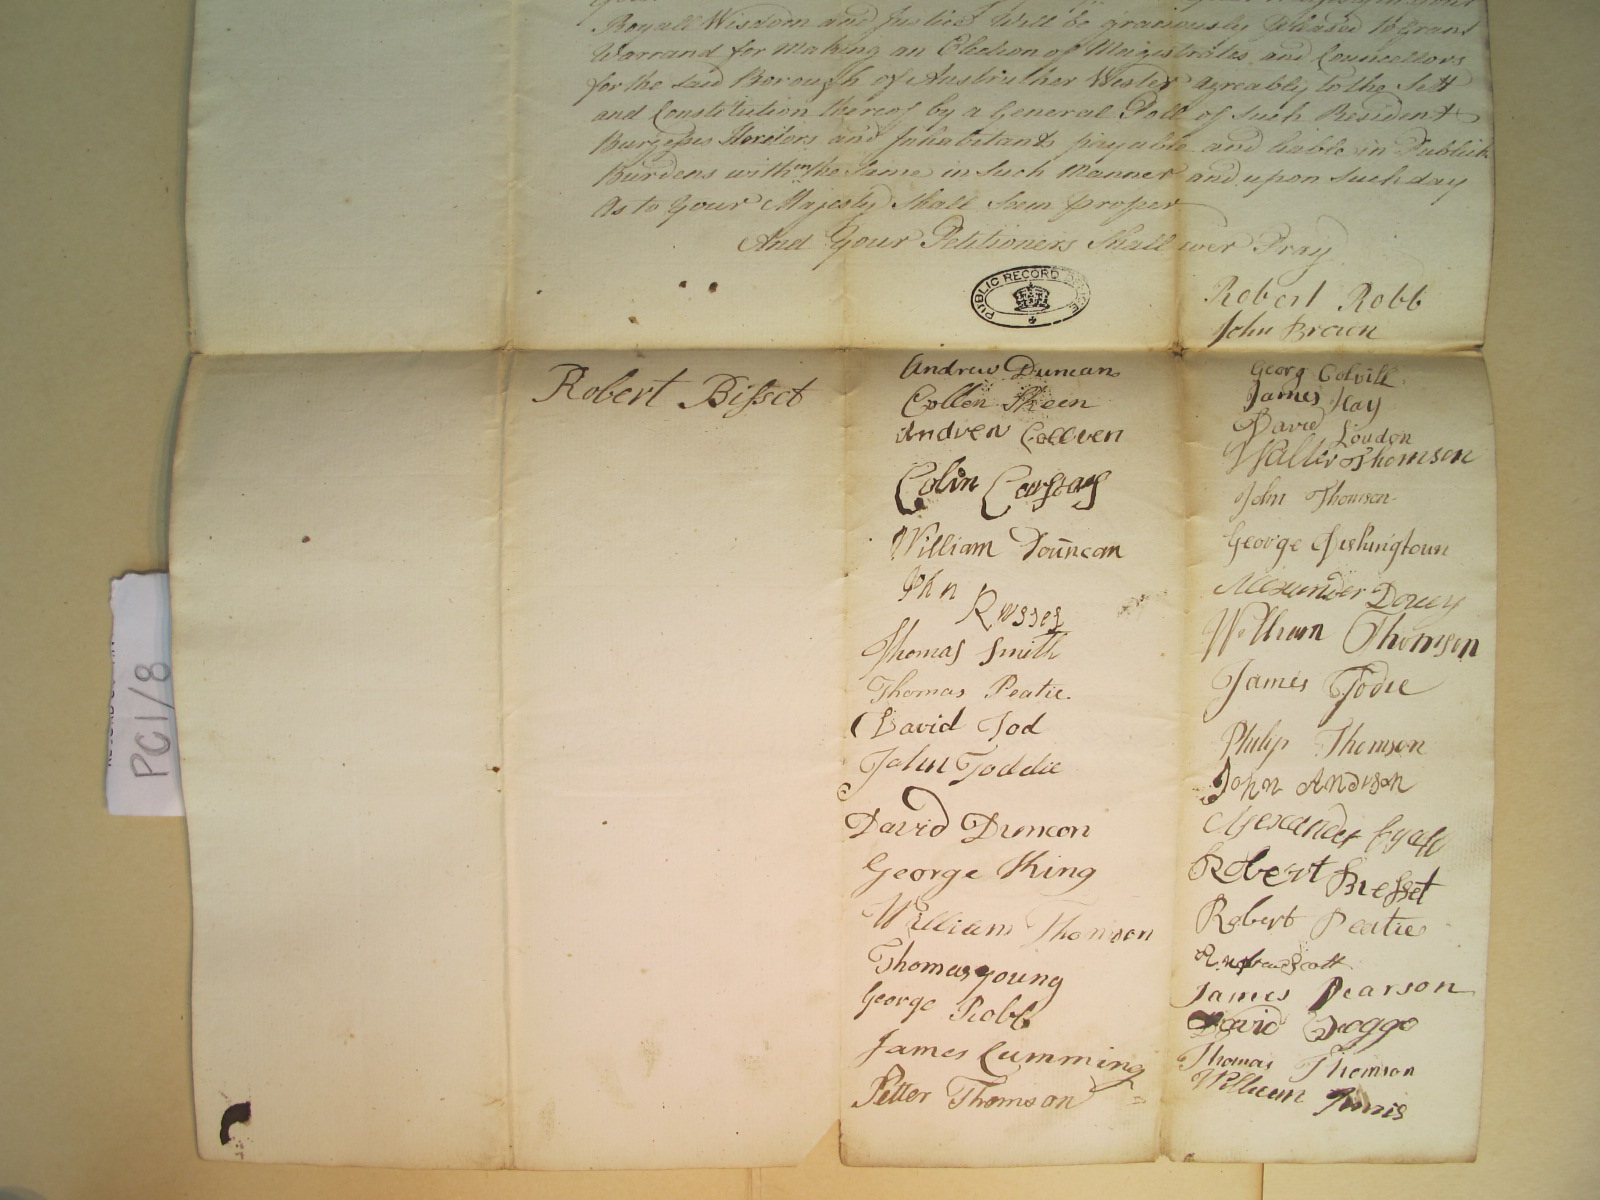 Royall Wisdom and Justice Will be graciously pleased to Grant
Warrand for Making an Election of Magistrates and Councellors
for the said Borough of Anstruther Wester Agreably to the Sett
and Constitution thereof by a General Poll of such Resident
Burgesses Heretors and Inhabitants payable and liable in Publick
Burdens within the Same in such Manner and upon such day
As to Your Majesty Shall Seem proper
And Your Petitioners Shall ever Pray
PUBLIC RECORD OFFICE
Robert Robb
John Brown
Robert Bisset
Andrew Duncan
Collen
Andrew
Colin
William Douncan
John
Thomas Smith
Thomas Peatie
David Tod
John Toddie
David Duncon
George King
William Thomson
Thomas young
George Robb
James Cumming
Petter Thomson
Georg Colvill
James Hay
David Loudon
Walter Thomson
John Thomson
George
Alexander
William Thomson
James Todie
Philip Thomson
John Andison
Alexander
Robert Bresset
Robert Peatie
Scott
James Pearson
David
Thomas Thomson
William Innis
PC1/8